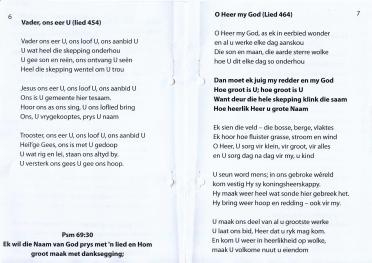 6
Vader, ons eer U (lied 454)
Vader ons eer U, ons loof U, ons aanbid U
U wat heel die skepping onderhou
U gee son en reën, ons ontvang U seën
Heel die skepping wentel om U trou
Jesus ons eer U, ons loof U, ons aanbid U
Ons is U gemeente hier tesaam.
Hoor ons as ons U sing, as ons U loflied bring
Ons, U vrygekooptes, prys U naam
Trooster, ons eer U, ons loof U, ons aanbid U
Heil'ge Gees, ons is met U gedoop
U wat rig en lei, staan ons altyd by.
U versterk ons gees U gee ons hoop.
Psm 69:30
Ek wil die Naam van God prys met 'n lied en Hom
groot maak met danksegging;
7
O Heer my God (Lied 464)
O Heer my God, as ek in eerbied wonder
en al u werke elke dag aanskou
Die son en maan, die aarde sterre wolke
hoe U dit elke dag so onderhou
Dan moet ek juig my redder en my God
Hoe groot is U; hoe groot is U
Want deur die hele skepping klink die saam
Hoe heerlik Heer u grote Naam
Ek sien die veld – die bosse, berge, vlaktes
Ek hoor hoe fluister grasse, stroom en wind
O Heer, U sorg vir klein, vir groot, vir alles
en U sorg dag na dag vir my, u kind
U seun word mens; in ons gebroke wêreld
kom vestig Hy sy koningsheerskappy.
Hy maak weer heel wat sonde hier gebreek het.
Hy bring weer hoop en redding – ook vir my.
U maak ons deel van al u grootste werke
U laat ons bid, Heer dat u ryk mag kom.
En kom U weer in heerlikheid op wolke,
maak U volkome nuut u eiendom